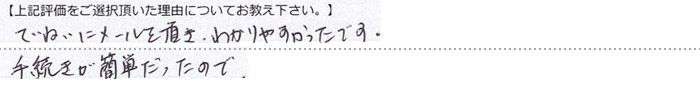 【上記評価をご選択頂いた理由についてお教え下さい。】
ていねいにメールを頂き、わかりやすかったです。
手続きが簡単だったので、